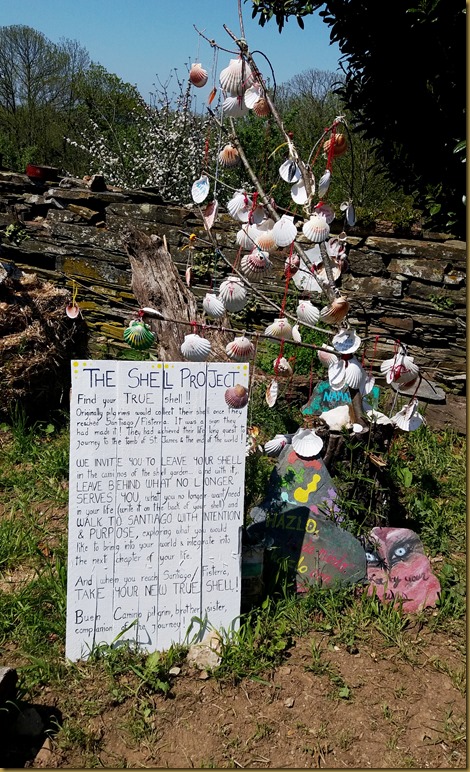 THE SHELL PROJECT
Find your TRUE shell!!
Originally pilgrims would collect their shell once they
reached Santiago/Fisterra. It was a sign they
had made it! They had survived their life long quest to
journey to the tomb of St. James & the end of the world!
WE INVITE YOU TO LEAVE YOUR SHELL
in the caminos of the shell garden... and with it,
LEAVE BEHIND WHAT NO LONGER
SERVES YOU, what you no longer want/need
in your life (write it on the back of your shell) and
WALK TO SANTIAGO WITH INTENTION
& PURPOSE, exploring what you would
like to bring into your world & integrate into
the next chapter of your life.
And when you reach Santiago/Fisterra,
TAKE YOUR NEW TRUE SHELL!
Buen Camino pilgrim, brother, sister,
companion of the journey!
HAZLO